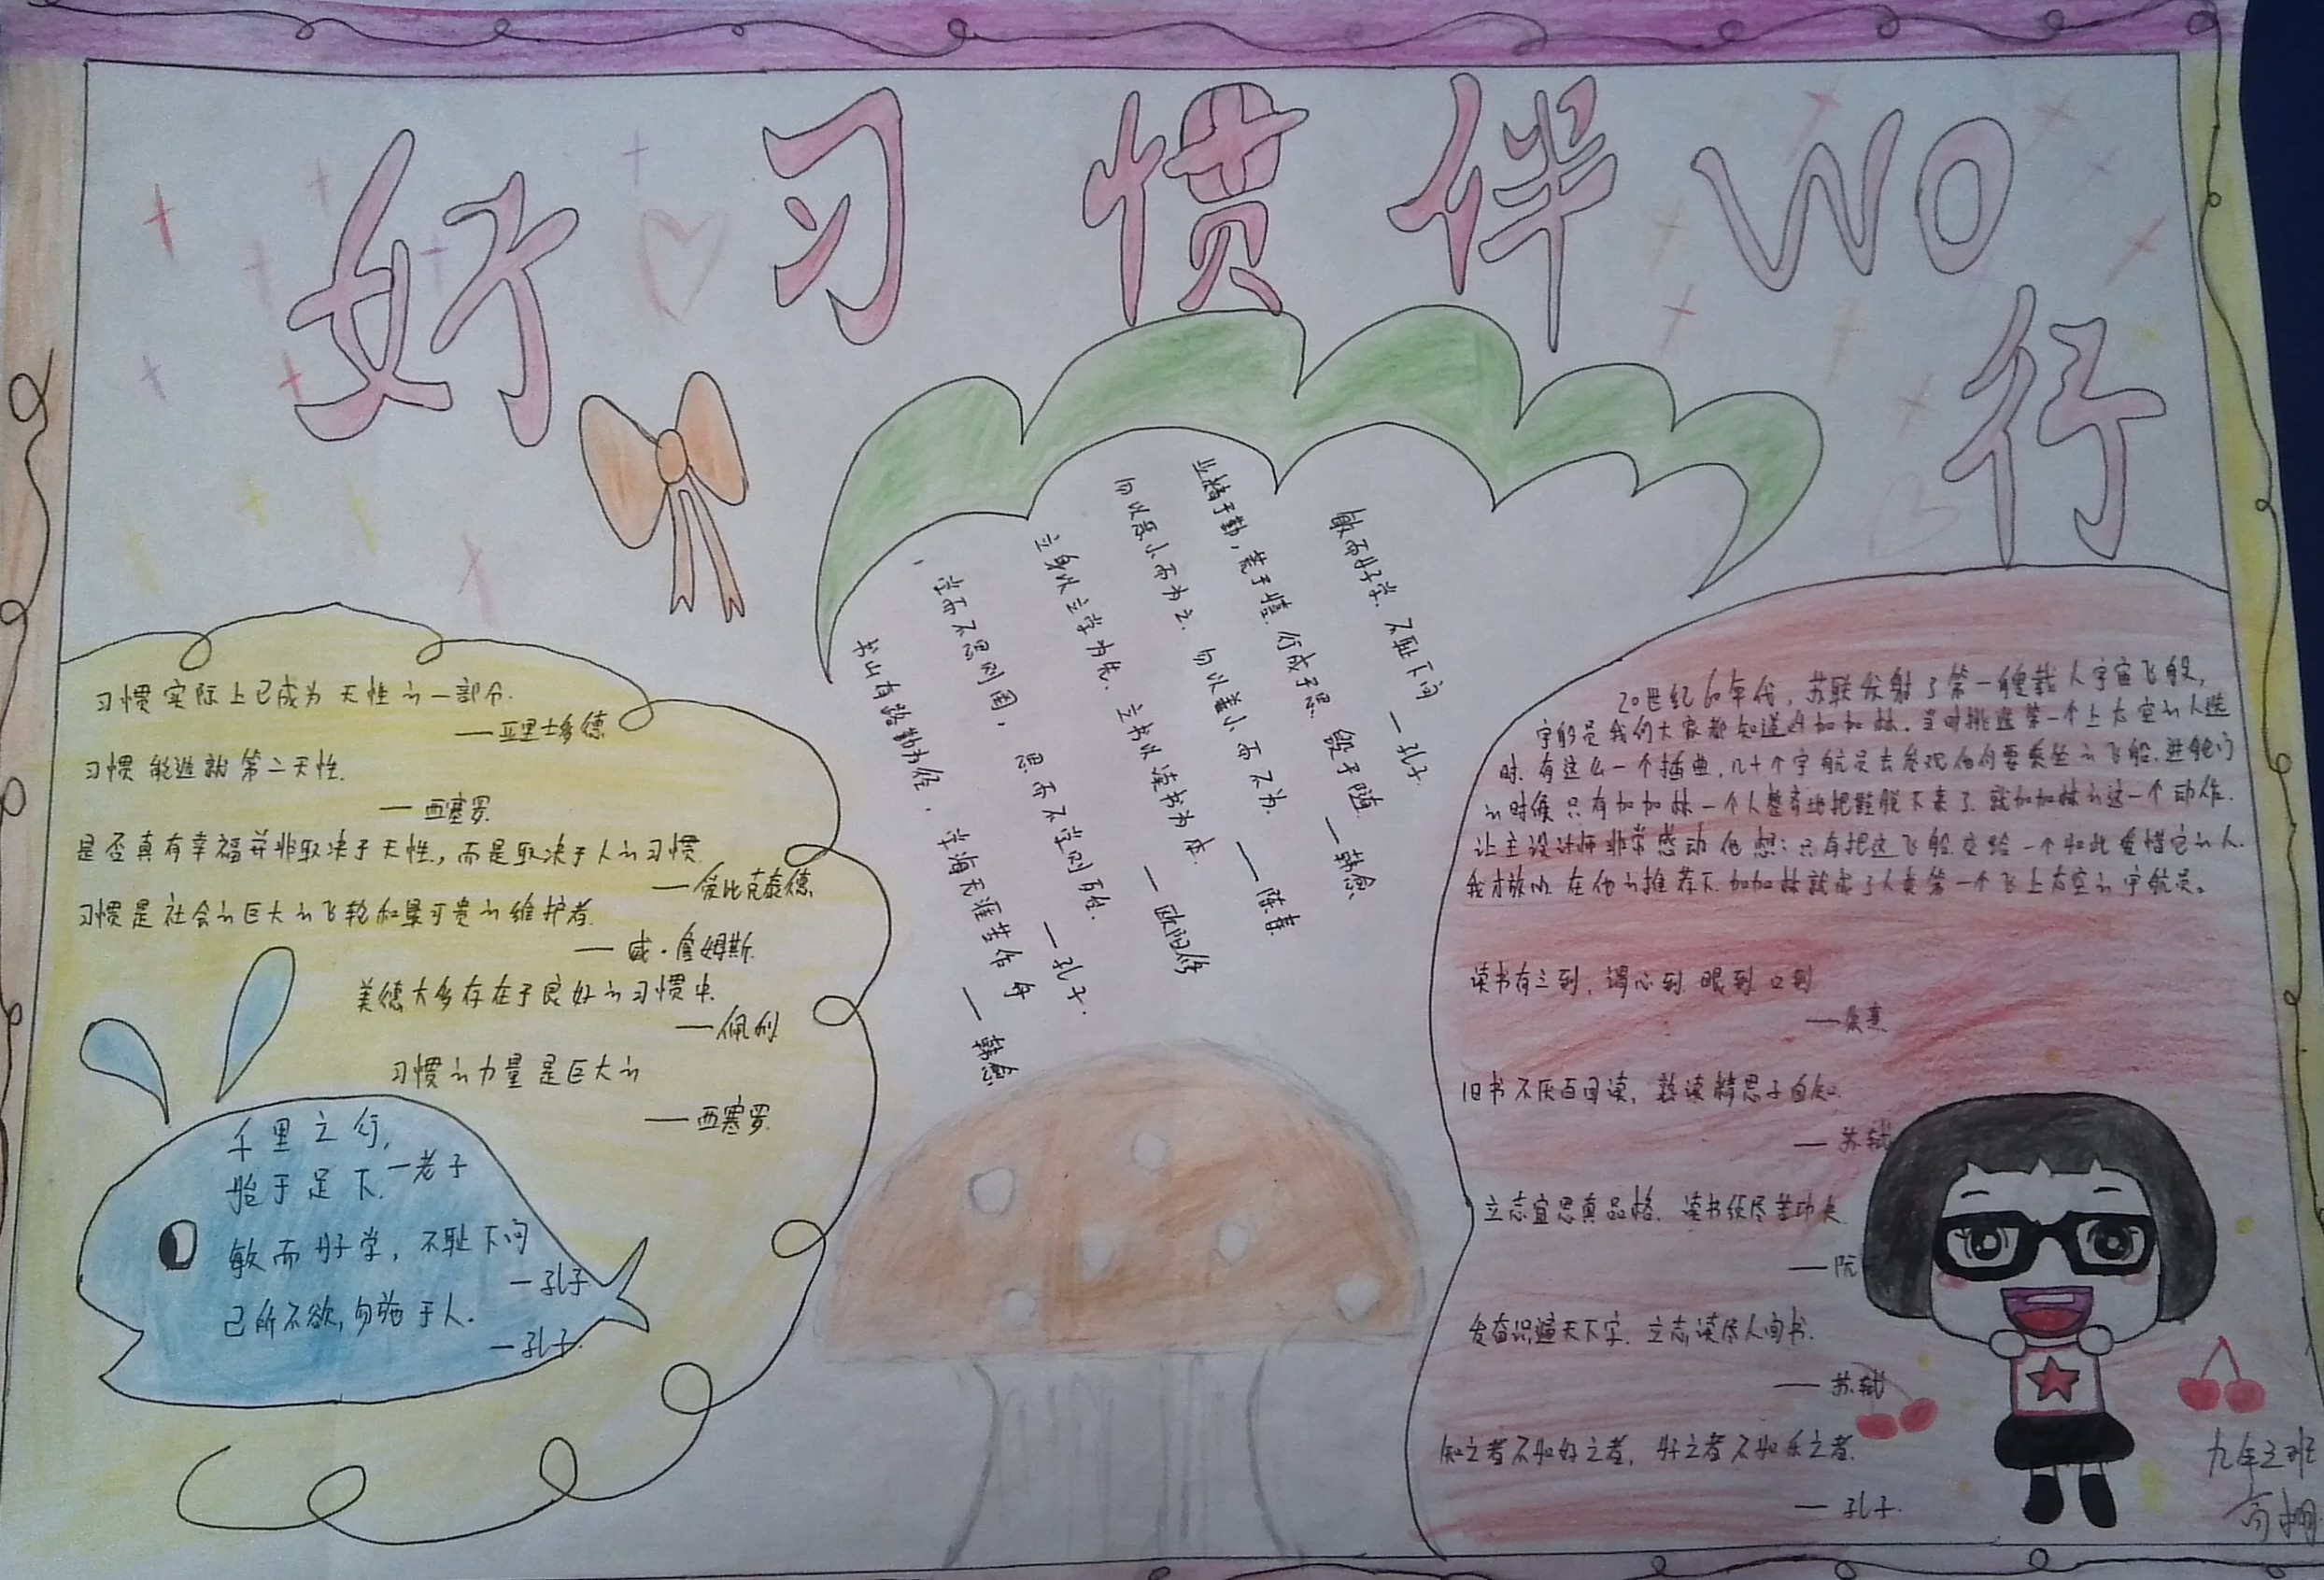 好习惯伴WO
行
习惯实际上已成为天性的一部分.
——亚里士多德
习惯能造就第二天性.
——西塞罗
是否真有幸福并非取决于天性,而是取决于人的习惯.
——爱比克泰德
习惯是社会的巨大的飞轮和最可贵的维护者.
——威·詹姆斯.
美德大多存在于良好的习惯中.
——佩利
习惯的力量是巨大的
——西塞罗.
千里之行,
始于足下.—老子
敏而好学,不耻下问
—孔子
己所不欲,勿施于人.
—孔子.
书山有路勤为径,学海无涯苦作舟 —韩愈
学而不思则罔,思而不学则殆. —孔子.
立身以立学为先,立学以读书为本. —欧阳修
勿以恶小而为之.勿以善小而不为. ——陈寿
业精于勤,荒于嬉.行成于思 毁于随 —韩愈
敏而好学.不耻下问 —孔子
20世纪60年代,苏联发射了第一艘载人宇宙飞船,
宇航员我们大家都知道叫加加林.当时挑选第一个上太空的人选
时.有这么一个插曲,几十个宇航员去参观他们要乘坐的飞船.进舱门
的时候 只有加加林一个人把鞋脱下来了.就加加林的这一个动作.
让主设计师非常感动 他想:只有把这飞船交给一个如此爱惜它的人.
我才放心.在他的推荐下.加加林就成了人类第一个飞上太空的宇航员。
读书有三到,谓心到 眼到 口到
——朱熹
旧书不厌百回读,熟读精思子自知.
——苏轼
立志宜思真品格.读书须尽苦功夫.
——阮
发奋识遍天下字.立志读尽人间书.
——苏轼
知之者不如好之者,好之者不如乐之者.
—孔子.
九年三班
高